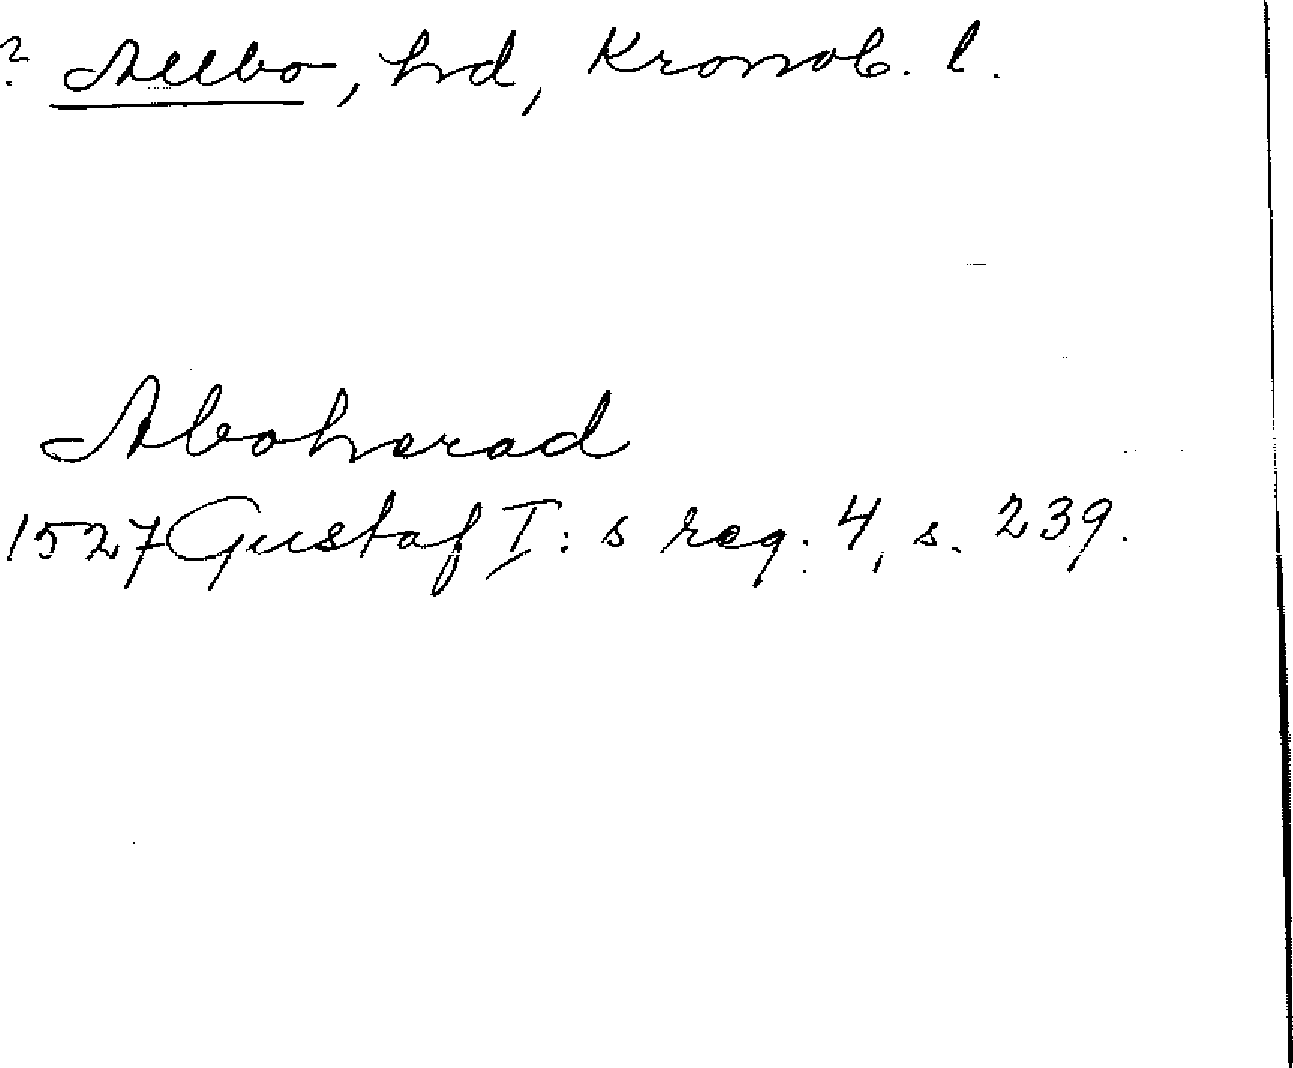 ? Allbo, hd, Kronob. l.
Aboharad
1527 Gustaf I:s reg. 4, s. 239.